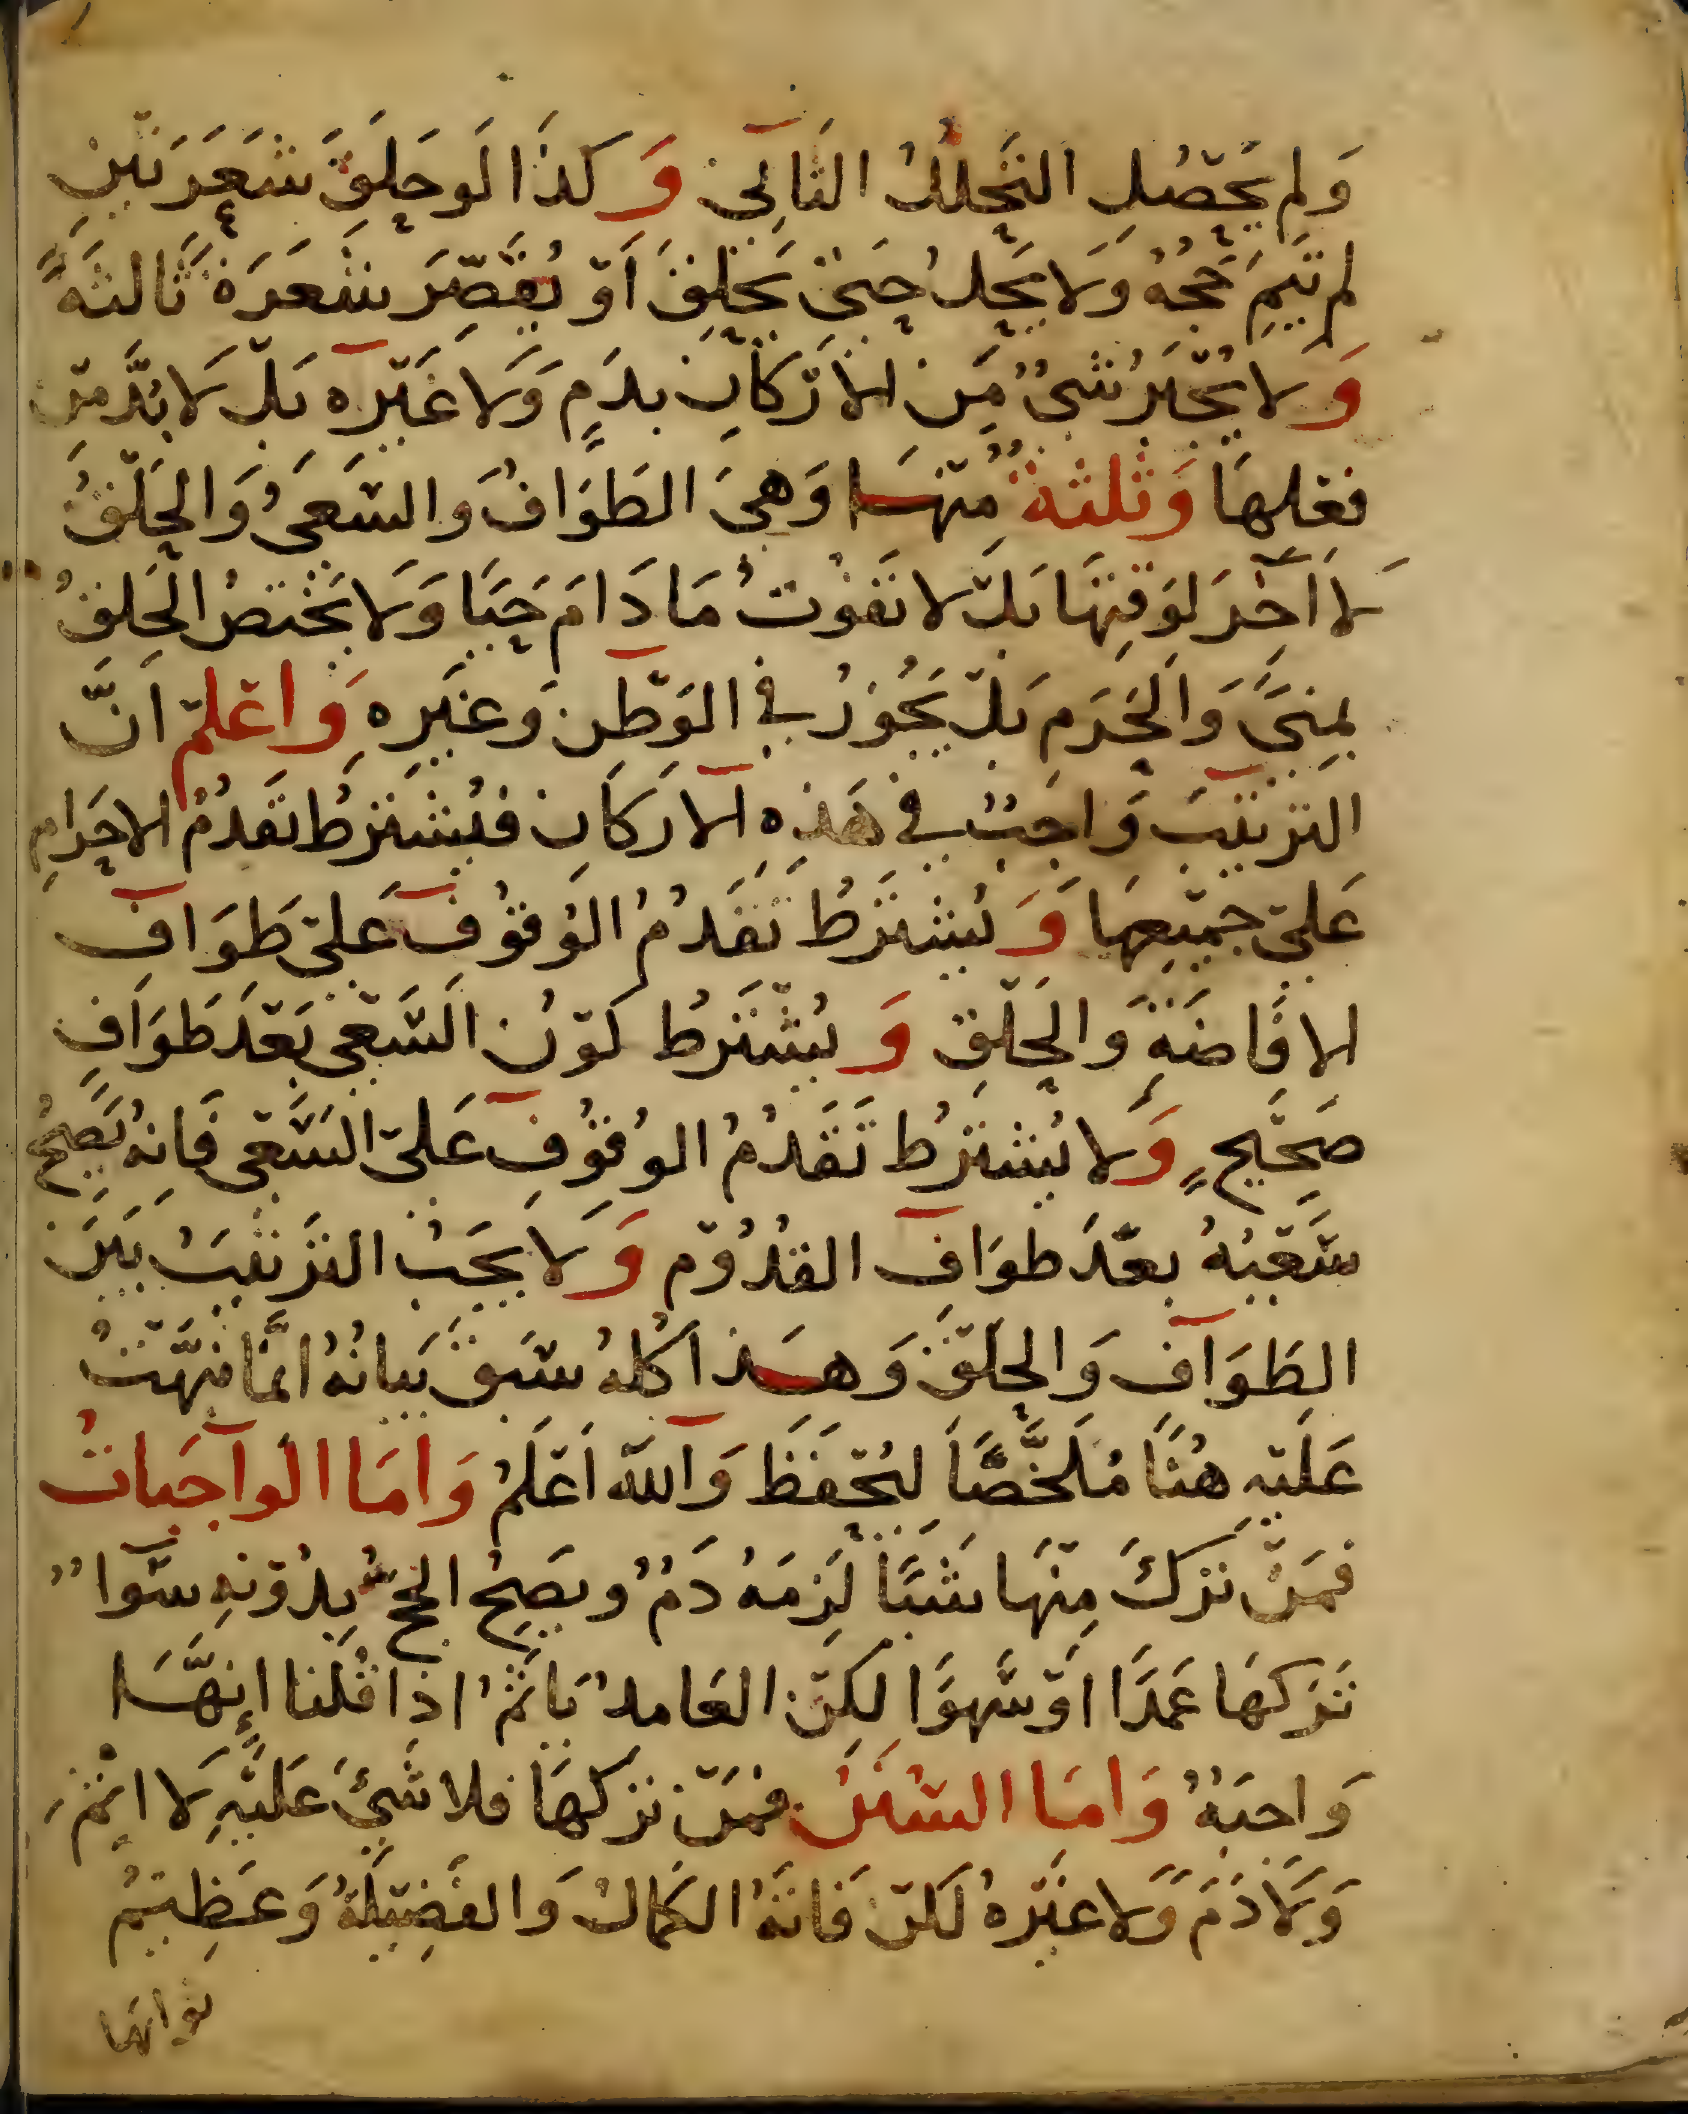 وَلم يَحْصُلِ التَّحَلُّلُ الثَّانِي وَكَذَا لَو حَلَقَ شَعَرَتَيْنِ
لم يَتِمَّ حَجُّهُ وَلَا يَحِلُّ حَتَّى يَحْلِقَ اَوْ يُقَصِّرَ شَعَرَةً ثَالثَةً
وَلا يُجْبَرُ شَىْءٌ مِنَ الاَرْكَانِ بِدَمٍ وَلَا غَيْرِه بَلْ لَا بُدَّ مِنْ
فعْلِهَا وَثلثةٌ مِنْهَا وَهِىَ الطَوَافُ وَالسَّعىُ وَالْحَلْقُ
لَا اٰخِرَ لِوَقتِهَا بَلْ لا تَفُوْتُ مَا دَامَ حَيًّا وَلَا يَخْتَصُّ الْحَلقُ
بِمِنَىً وَالْحَرَمِ بَلْ يَجُوْزُ فِي الوَطَنِ وَغَيْرِهِ وَاعْلمْ اَنَّ
الترْتيْبَ وَاجِبٌ فِي هَذِهِ الاَرْكَانِ فيُشْتَرَطُ تَقَدُّمُ الاحْرَامِ
عَلىْ جَمِيْعِهَا وَيُشْتَرَطُ تَقَدُّمُ الوُقُوْفِ عَلىْ طَوَافِ
الافَاضَةِ وَالْحَلْقِ وَيُشْتَرَطُ كَوْنُ السَّعْىِ بَعْدَ طَوَافٍ
صَحِيْحٍ وَلَا يُشْتَرَطُ تَقَدُّمُ الوُقُوْفِ عَلىْ السَّعْىِ فَانهُ يَصِحُّ
سَعْيُهُ بعْدَ طوَافِ القُدُوْمِ وَلَا يَجبُ الترْتيْبُ بَيْنَ
الطَوَافِ وَالْحَلْقِ وَهَذا كُلهُ سَبَقَ بَيَانُهُ انَّمَا نبَّهْتُ
عَلَيْهِ هُنَا مُلَخَّصًا ليُحْفَظَ وَاللّه اَعْلَمُ وَامَا الواجِبَاتُ
فمَنْ تَرَكَ مِنْهَا شَيْئًا لَزِمَهُ دَمٌ ويَصِحُّ الحَجُّ بِدُوْنِهِ سَوَاءٌ
تَرَكَهَا عَمَدًا اَوْ سَهوًا لكِنِ العَامدُ يَاثَمُ اذَا قُلْنَا اِنَّهَا
وَاجبَةٌ وَامَا السُّنَنُ فمَنْ تَرَكَهَا فلا شَىْءَ عَلَيْهِ لَا اثْمَ
وَلَا دَمَ وَلا غَيْرهُ لَكنْ فَاتَهُ الكَمالُ وَالفَضِيْلَةُ وَعَظِيْمُ
ثوابها